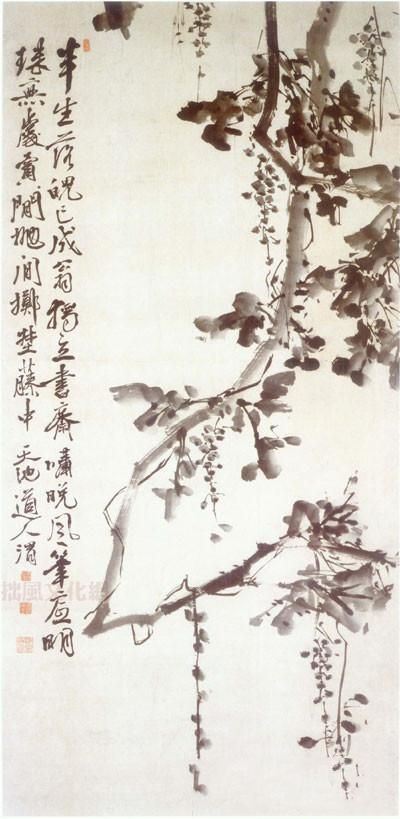 半生落魄已成翁獨立書齋嘯晚風筆底明
珠無處賣閒拋閒擲埜藤中 天池道人渭
拙風文化網